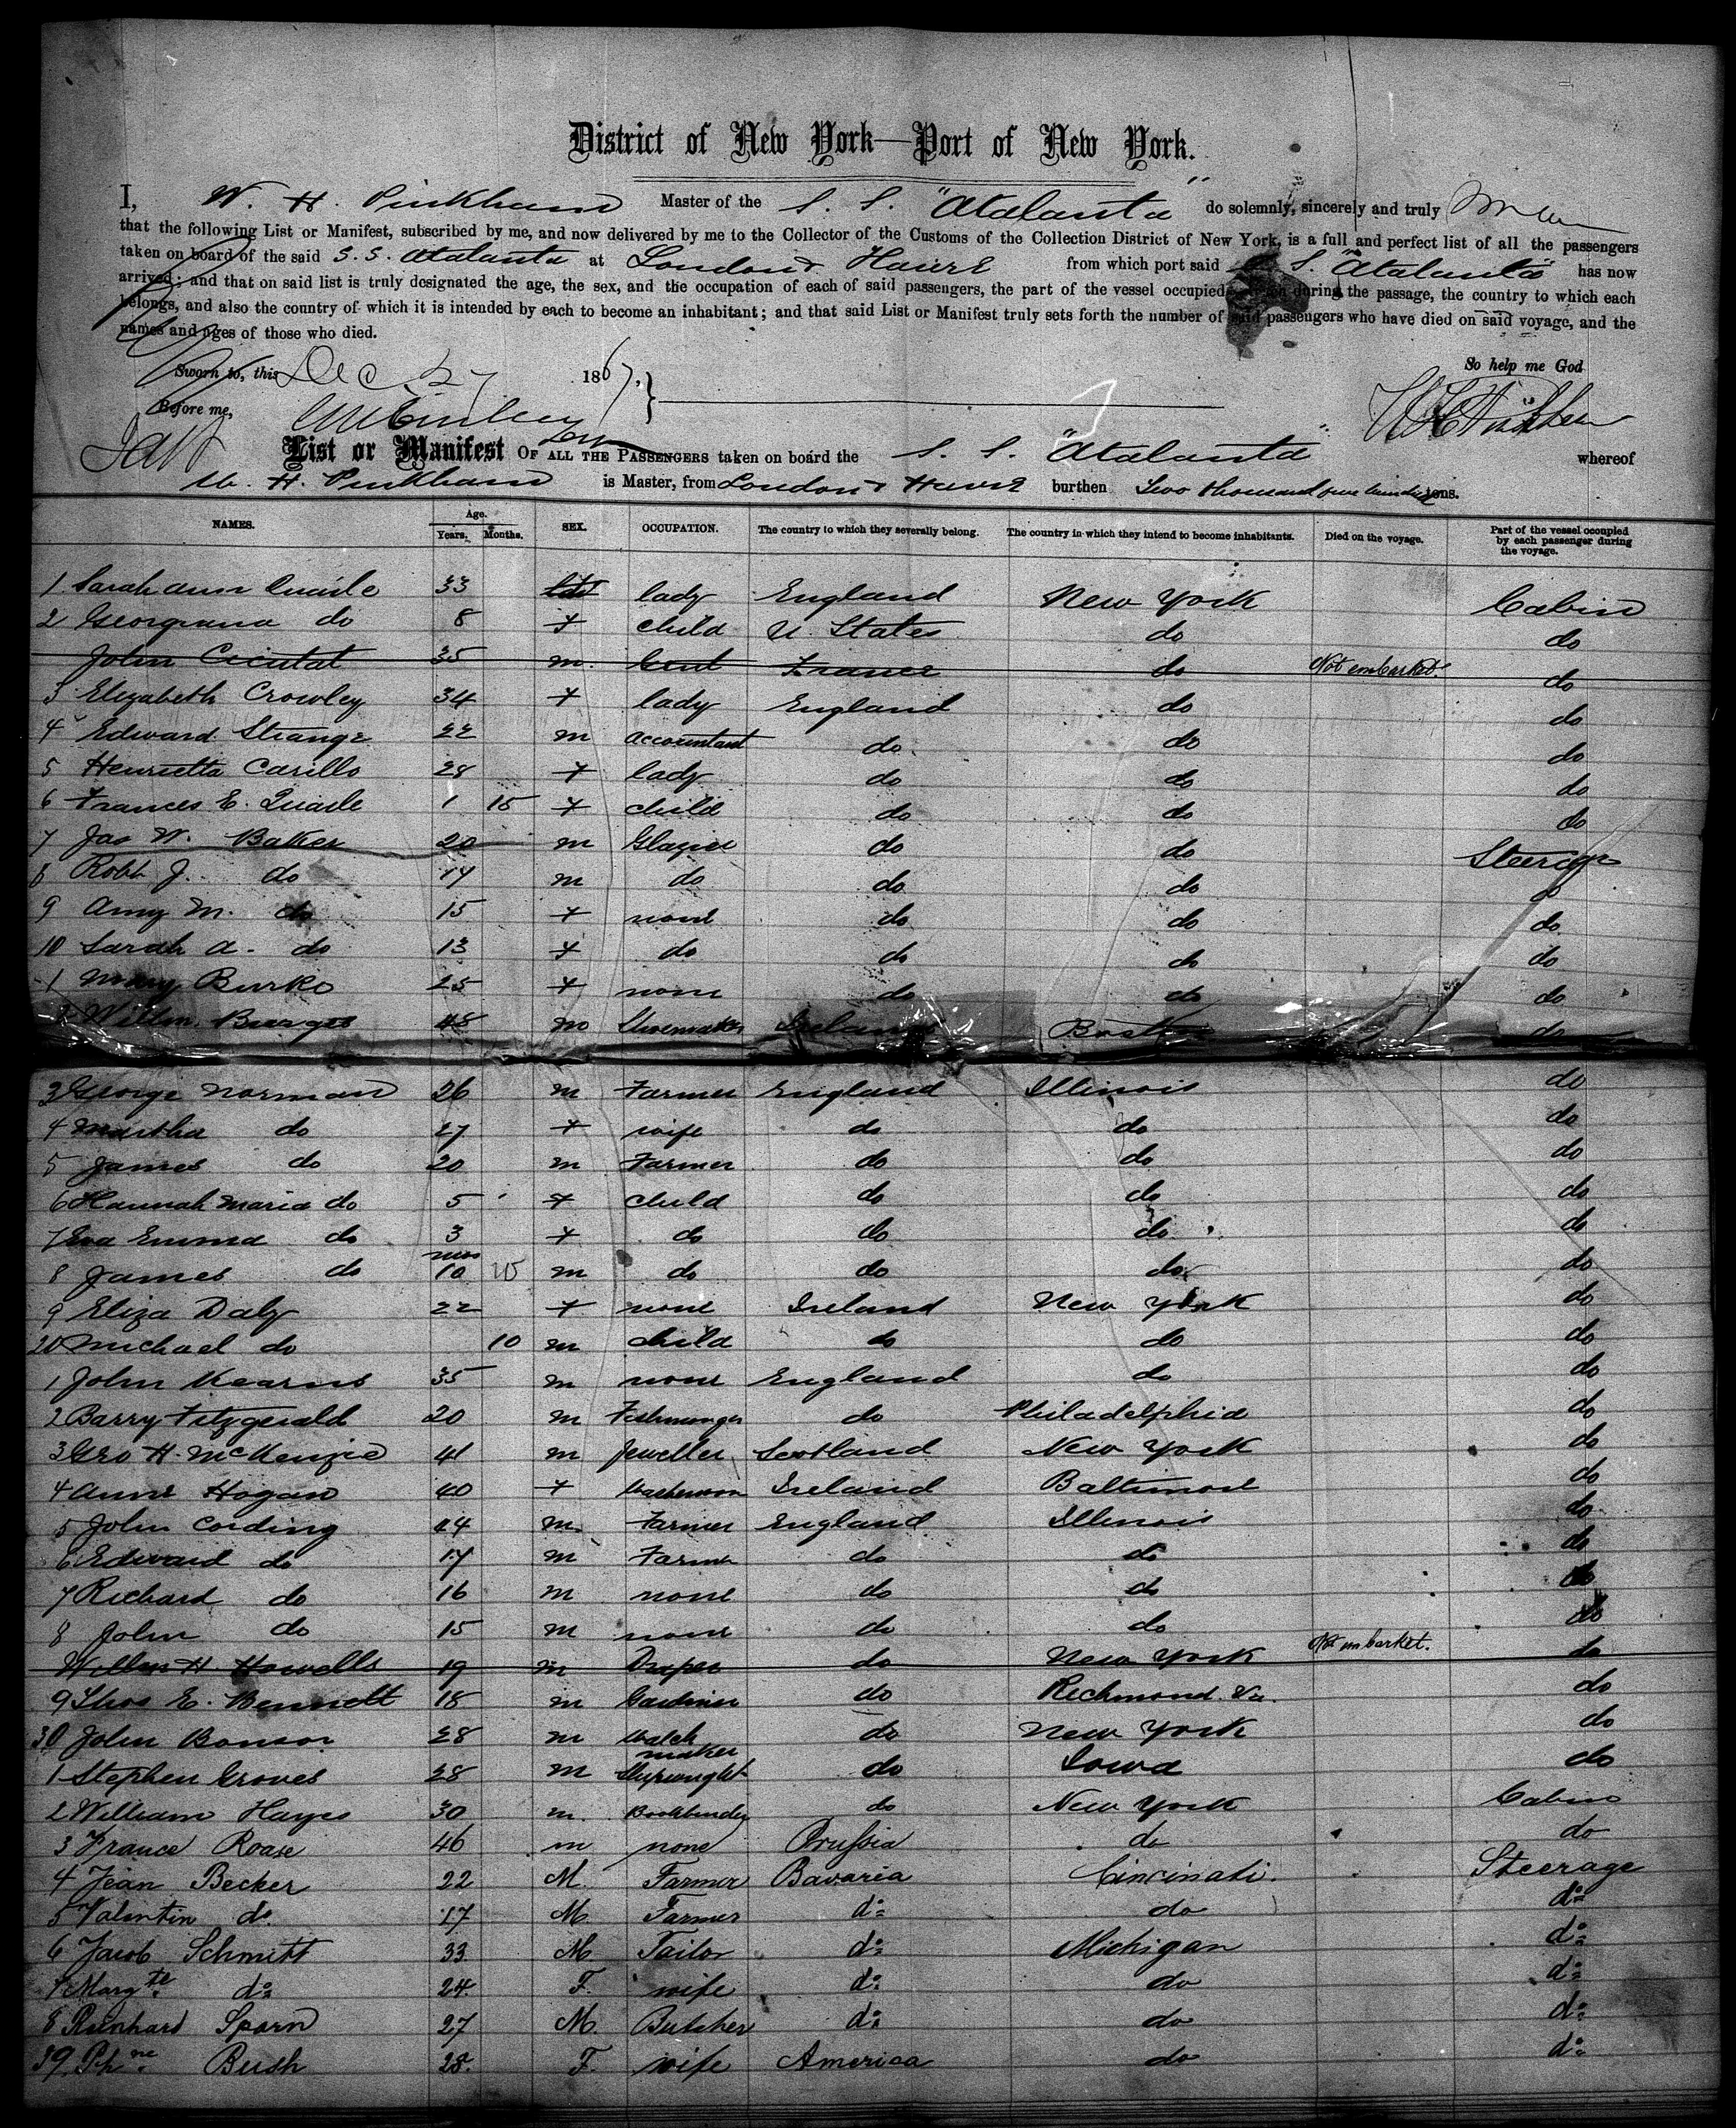 District of New York—Port of New York.
I, W. H. Pinkham Master of the S. S. "Atalanta" do solemnly, sincerely and truly
that the following List or Manifest, subscribed by me, and now delivered by me to the Collector of the Customs of the Collection District of New York, is a full and perfect list of all the passengers
taken on board of the said S. S. Atalanta at London & Havre from which port said S. S. "Atalanta" has now
arrived; and that on said list is truly designated the age, the sex, and the occupation of each of said passengers, the part of the vessel occupied during the passage, the country to which each
belongs, and also the country of which it is intended by each to become an inhabitant; and that said List or Manifest truly sets forth the number of said passengers who have died on said voyage, and the
names and ages of those who died.
So help me God
Sworn to, this Dec 27 1867,
Before me,
List or Manifest OF ALL THE PASSENGERS taken on board the S. S. "Atalanta" whereof
W. H. Pinkham is Master, from London & Havre burthen Two thousand five hundred tons.
NAMES. Age. Years. Months. SEX. OCCUPATION. The country to which they severally belong. The country in which they intend to become inhabitants. Died on the voyage. Part of the vessel occupied by each passenger during the voyage.
1 Sarah Ann Quaile 33 lady England New York Cabin
2 Georgiana do 8 f child U. States do do
John Cicutat 35 m. Gent France do Not embarked. do
3 Elizabeth Crowley 34 f lady England do do
4 Edward Strange 22 m accountant do do do
5 Henrietta Carillo 28 f lady do do do
6 Frances E. Quaile 1 15 f child do do do
7 Jas W. Baker 20 m Glazier do do Steerage
8 Robt J. do 17 m do do do do
9 Amy M. do 15 f none do do do
10 Sarah A. do 13 f do do do do
1 Mary Burke 25 f none do do do
2 Willm. Burges 48 m Shoemaker Ireland Bost do
3 George Norman 26 m Farmer England Illinois do
4 Martha do 27 f wife do do do
5 James do 20 m Farmer do do do
6 Hannah Maria do 5 f child do do do
7 Eva Emma do 3 f do do do do
8 James do mos 10 m do do do do
9 Eliza Daly 22 f none Ireland New York do
20 Michael do 10 m child do do do
1 John Kearns 35 m none England do do
2 Barry Fitzgerald 20 m Fishmonger do Philadelphia do
3 Geo H. McKenzie 41 m Jeweller Scotland New York do
4 Anne Hogan 40 f Ireland Baltimore do
5 John Cording 44 m. Farmer England Illinois do
6 Edward do 17 m Farmer do do do
7 Richard do 16 m none do do do
8 John do 15 m none do do do
Willm H. Howells 19 m Draper do New York Not embarket. do
9 Thos E. Bennett 18 m Gardiner do Richmond Va. do
30 John Bonsor 28 m Watch maker do New York do
1 Stephen Groves 28 m Shipwright do Iowa do
2 William Hayes 30 m. Bookbinder do New York Cabin
3 France Roase 46 m none Prussia do do
4 Jean Becker 22 M. Farmer Bavaria Cincinati. Steerage
5 Valentin do. 17 M. Farmer do do do
6 Jacob Schmitt 33 M Tailor do Michigan do
7 Margte. do 24 F. wife do do do
8 Reinhard Sparn 27 M. Butcher do do do
39. Phne. Bush 28. F. wife America do do